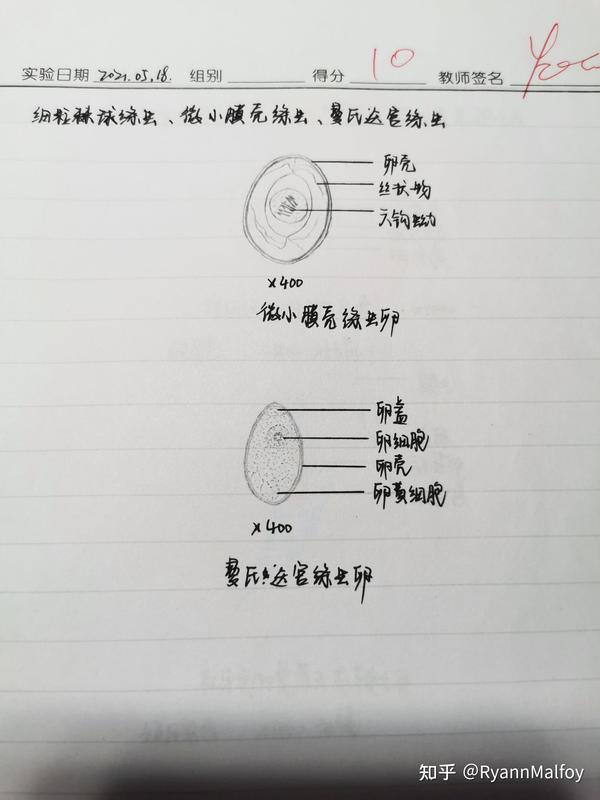 实验日期 2021.05.18. 组别 得分 10 教师签名
细粒棘球绦虫、微小膜壳绦虫、曼氏迭宫绦虫
卵壳
丝状物
六钩蚴
×400
微小膜壳绦虫卵
卵盖
卵细胞
卵壳
卵黄细胞
×400
曼氏迭宫绦虫卵
知乎 @RyannMalfoy